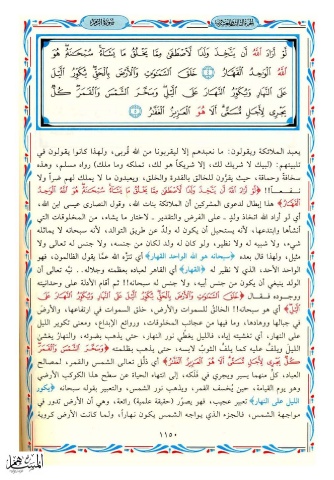 لَّوْ أَرَادَ اللَّهُ أَن يَتَّخِذَ وَلَدًا لَّاصْطَفَىٰ مِمَّا يَخْلُقُ مَا يَشَاءُ سُبْحَانَهُ هُوَ
اللَّهُ الْوَاحِدُ الْقَهَّارُ ﴿٤﴾ خَلَقَ السَّمَاوَاتِ وَالْأَرْضَ بِالْحَقِّ يُكَوِّرُ اللَّيْلَ
عَلَى النَّهَارِ وَيُكَوِّرُ النَّهَارَ عَلَى اللَّيْلِ وَسَخَّرَ الشَّمْسَ وَالْقَمَرَ كُلٌّ
يَجْرِي لِأَجَلٍ مُّسَمًّى أَلَا هُوَ الْعَزِيزُ الْغَفَّارُ ﴿٥﴾
يعبد الملائكة ويقولون: ما نعبدهم إلا ليقربونا من الله قربى، ولهذا كانوا يقولون في
تلبيتهم: (لبيك لا شريك لك، إلا شريكاً هو لك، تملكه وما ملك) رواه مسلم، وهذه
سخافة وحماقة، حيث يقرّون للخالق بالقدرة والخلق، ويعبدون ما لا يملك لهم ضراً ولا
نفعـاً!! ﴿لَّوْ أَرَادَ اللَّهُ أَن يَتَّخِذَ وَلَدًا لَّاصْطَفَىٰ مِمَّا يَخْلُقُ مَا يَشَاءُ سُبْحَانَهُ هُوَ اللَّهُ الْوَاحِدُ
الْقَهَّارُ﴾ هذا إبطال لدعوى المشركين أن الملائكة بنات الله، وقول النصارى عيسى ابن الله،
أي لو أراد الله اتخاذ ولدٍ ـ على الفرض والتقدير ـ لاختار ما يشاء، من المخلوقات التي
أنشأها وابتدعها، لأنه يستحيل أن يكون له ولدٌ عن طريق التوالد، لأنه سبحانه لا يماثله
شيء، ولا شبيه له ولا نظير، ولو كان له ولد لكان من جنسه، ولا جنس له تعالى ولا
مثيل، ولهذا قال بعده ﴿سبحانه هو الله الواحد القهار﴾ أي تنزَّه الله عمَّا يقول الظالمون، فهو
الواحد الأحد، الذي لا نظير له ﴿القهار﴾ أي القاهر لعباده بعظمته وجلاله.. نبَّه تعالى أن
الولد ينبغي أن يكون من جنس أبيه، ولا جنس له سبحانه!! ثم أقام الأدلة على وحدانيته
ووجوده فقـال ﴿خَلَقَ السَّمَاوَاتِ وَالْأَرْضَ بِالْحَقِّ يُكَوِّرُ اللَّيْلَ عَلَى النَّهَارِ وَيُكَوِّرُ النَّهَارَ عَلَى
اللَّيْلِ﴾ أي هو سبحانه!! الخالقُ للسموات والأرض، خلق السموات في ارتفاعها، والأرض
في جبالها ووهادها، وما فيها من عجائب المخلوقات، وروائع الإبداع، ومعنى تكوير الليل
على النهار، أي تغشيته إياه، فالليل يغطّي نور النهار، حتى يذهب بضوئه، والنهارُ يغشى
الليل ويلفُّ عليه كما يلف الثوبُ لابسه، حتى يذهب بظلمته ﴿وَسَخَّرَ الشَّمْسَ وَالْقَمَرَ
كُلٌّ يَجْرِي لِأَجَلٍ مُّسَمًّى أَلَا هُوَ الْعَزِيزُ الْغَفَّارُ﴾ أي ذلَّل تعالى الشمس والقمر، لمصالح
العباد، كلٌّ منهما يسير ويجري في فَلَكه، إلى انتهاء الحياة عن سطح هذا الكوكب الأرضي
وهو يوم القيامة، حين يُخسف القمر، ويذهب نور الشمس، والتعبير بقوله سبحانه ﴿يكور
الليل على النهار﴾ تعبير عجيب، فهو يصوّر (حقيقة علمية) رائعة، وهي أن الأرض تدور في
مواجهة الشمس، فالجزء الذي يواجه الشمس يكون نهاراً، ولما كانت الأرض كروية
١١٥٠